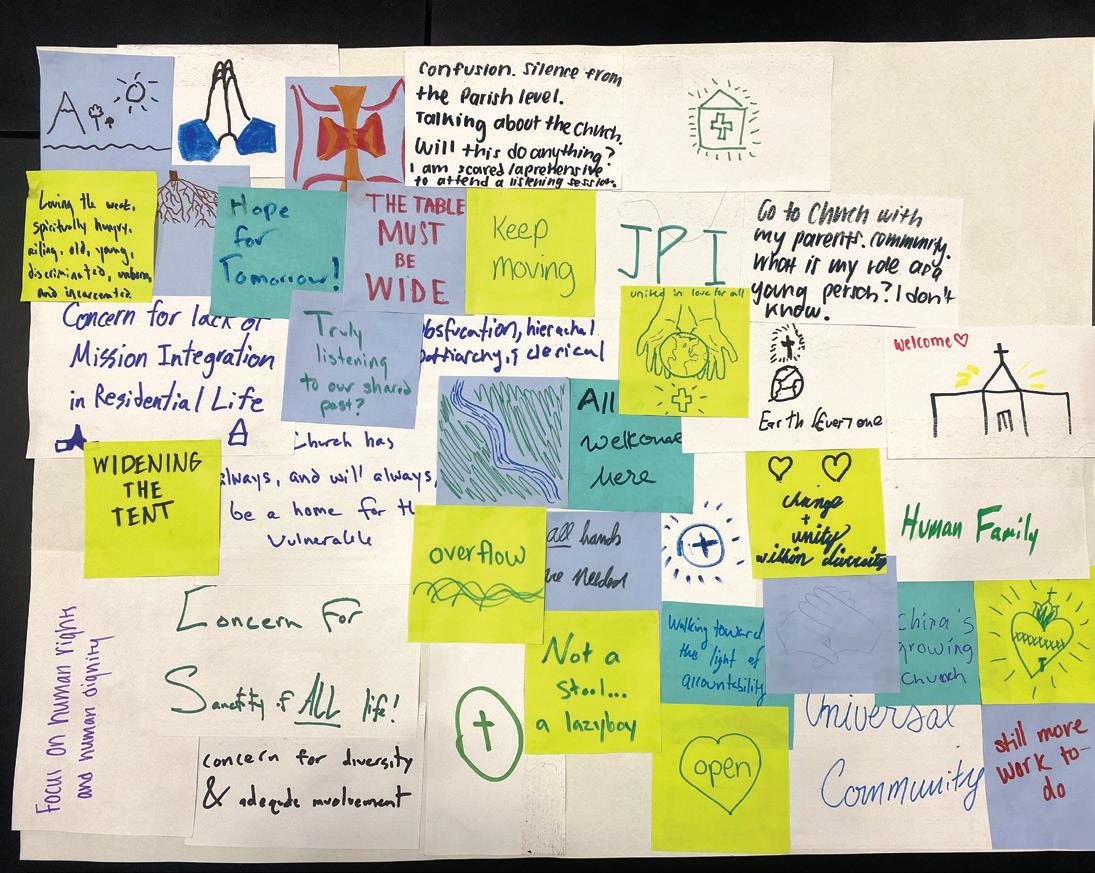 Confusion. Silence from
the Parish level.
Talking about the Church.
Will this do anything?
I am scared/aprehensive
to attend a listening session.
Loving the weak,
spiritually hungry,
ailing, old, young,
discriminated, unborn,
and incarcerated.
Hope
for
Tomorrow!
THE TABLE
MUST
BE
WIDE
Keep
moving
JPI
Go to Church with
my parents. community.
What is my role as a
young person? I don't
know.
united in love for all
Concern for lack of
Mission Integration
in Residential Life
Truly
listening
to our shared
past?
obsfucation, hierachal
patriarchy, & clerical
Earth/Everyone
welcome
All
welcome
here
WIDENING
THE
TENT
Church has
always, and will always,
be a home for th
vulnerable
overflow
all hands
are needed
change
+
unity
within diversity
Human Family
Focus on human rights
and human dignity
Concern for
Sanctity of ALL life!
Not a
stool...
a lazyboy
Walking toward
the light of
accountability
China's
growing
church
concern for diversity
& adequate involvement
open
Universal
Community
still more
work to
do